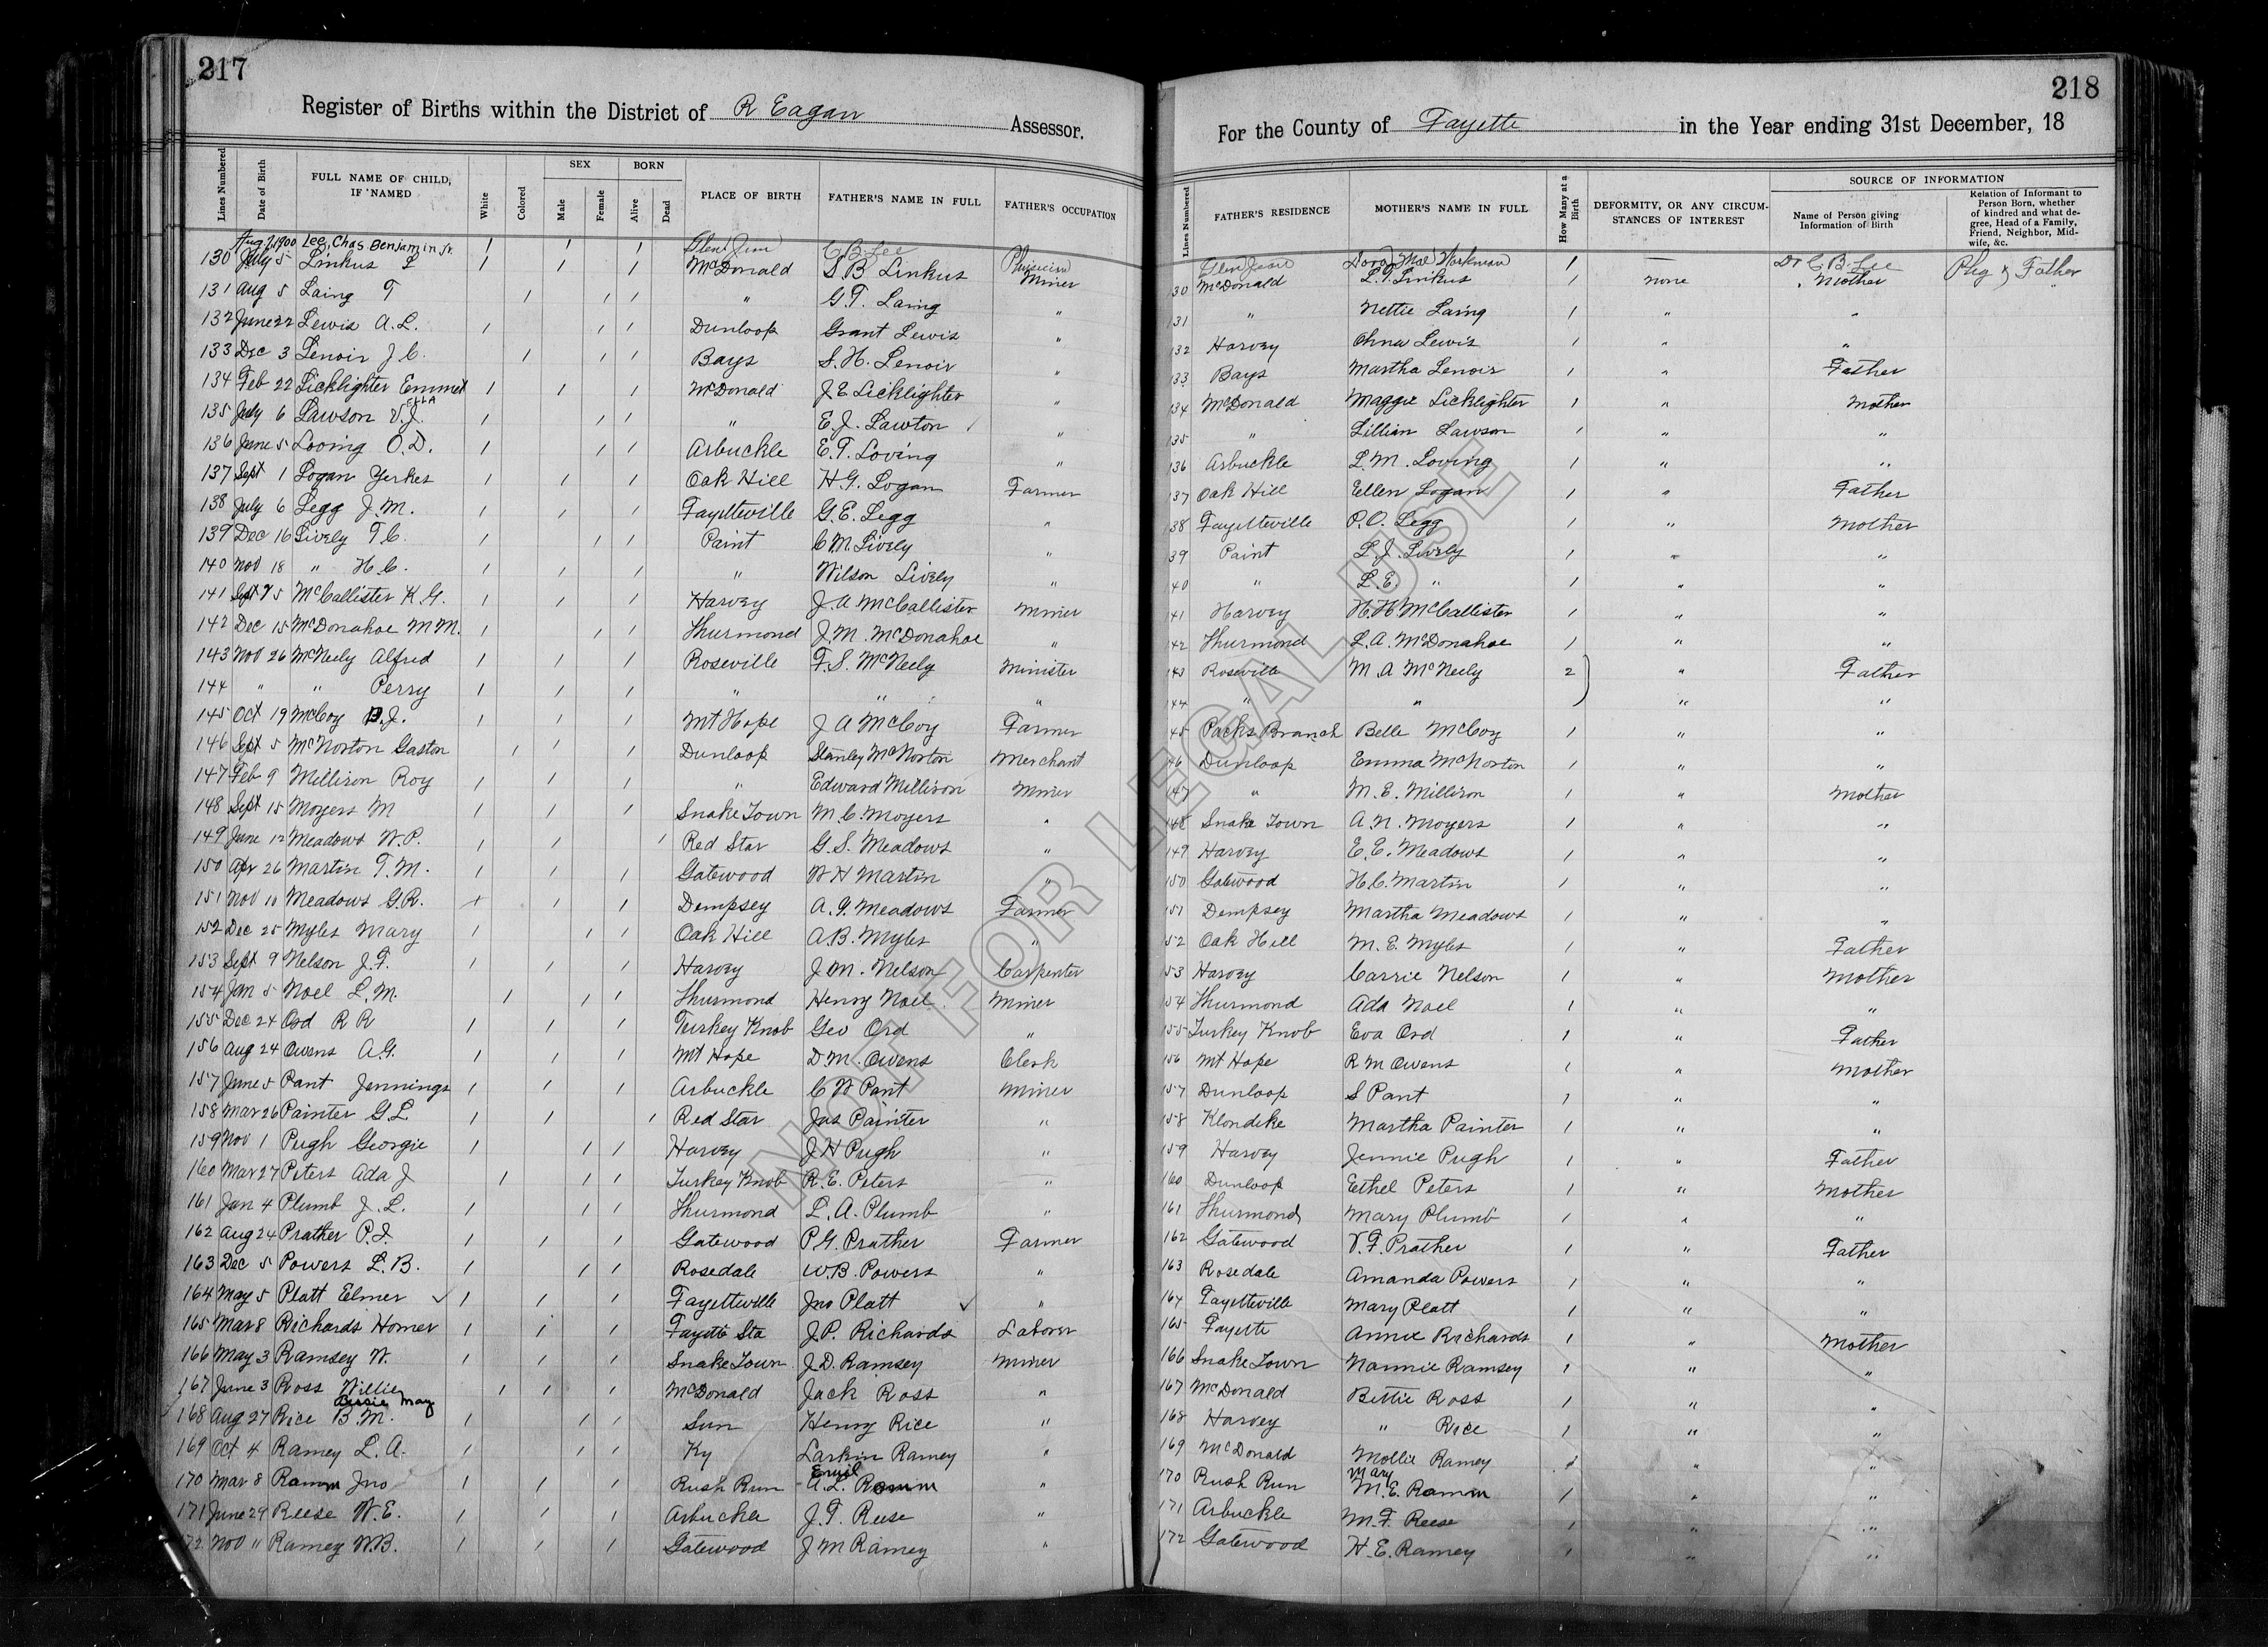 217
Register of Births within the District of R Eagan Assessor.
Lines Numbered | Date of Birth | FULL NAME OF CHILD, IF NAMED | White | Colored | SEX Male | Female | BORN Alive | Dead | PLACE OF BIRTH | FATHER'S NAME IN FULL | FATHER'S OCCUPATION
Aug 7, 1900 Lee, Chas Benjamin Jr. 1 1 1 Glen Jean C B Lee Physician
130 July 5 Linkus L 1 1 1 McDonald S B Linkus Miner
131 Aug 5 Laing T 1 1 1 " G. T. Laing "
132 June 22 Lewis A. L. 1 1 1 Dunloop Grant Lewis "
133 Dec 3 Lenoir J. C. 1 1 1 Bays S. H. Lenoir "
134 Feb 22 Licklighter Emmet 1 1 1 McDonald J. E Licklighter "
135 July 6 Lawson V. J. ELLA 1 1 1 " E. J. Lawton "
136 June 5 Loving O. D. 1 1 1 Arbuckle E. T. Loving "
137 Sept 1 Logan Yerkes 1 1 1 Oak Hill H. G. Logan Farmer
138 July 6 Legg J. M. 1 1 1 Fayetteville G. E. Legg "
139 Dec 16 Lively T C. 1 1 1 Paint C M. Lively "
140 Nov 18 " H. C. 1 1 1 " Wilson Lively "
141 Sept 25 McCallister K. G. 1 1 1 Harvey J. A McCallister Miner
142 Dec 15 McDonahoe M M. 1 1 1 Thurmond J. M. McDonahoe "
143 Nov 26 McNeely Alfred 1 1 1 Roseville F. S. McNeely Minister
144 " " Perry 1 1 1 " " "
145 Oct 19 McCoy B. J. 1 1 1 Mt Hope J A McCoy Farmer
146 Sept 5 McNorton Gaston 1 1 1 Dunloop Stanley McNorton Merchant
147 Feb 9 Millison Roy 1 1 1 " Edward Millison Miner
148 Sept 15 Moyers M 1 1 1 Snake Town M. C. Moyers "
149 June 12 Meadows W. P. 1 1 1 Red Star G. S. Meadows "
150 Apr 26 Martin T. M. 1 1 1 Gatewood W H Martin "
151 Nov 10 Meadows G. R. 1 1 1 Dempsey A. G. Meadows Farmer
152 Dec 25 Myles Mary 1 1 1 Oak Hill A. B. Myles "
153 Sept 9 Nelson J. F. 1 1 1 Harvey J. M. Nelson Carpenter
154 Jan 5 Noel L. M. 1 1 1 Thurmond Henry Noel Miner
155 Dec 24 Ord R R 1 1 1 Turkey Knob Geo Ord "
156 Aug 24 Owens A. G. 1 1 1 Mt Hope D. M. Owens Clerk
157 June 5 Pant Jennings 1 1 1 Arbuckle C W Pant Miner
158 Mar 26 Painter G L 1 1 1 Red Star Jas Painter "
159 Nov 1 Pugh Georgie 1 1 1 Harvey J H Pugh "
160 Mar 27 Peters Ada J 1 1 1 Turkey Knob R. E. Peters "
161 Jan 4 Plumb J. L. 1 1 1 Thurmond L. A. Plumb "
162 Aug 24 Prather P. I. 1 1 1 Gatewood P. G. Prather Farmer
163 Dec 5 Powers L. B. 1 1 1 Rosedale W. B. Powers "
164 May 5 Platt Elmer ✓ 1 1 1 Fayetteville Jno Platt ✓ "
165 Mar 8 Richards Homer 1 1 1 Fayette Sta J. P. Richards Laborer
166 May 3 Ramsey W. 1 1 1 Snake Town J. D. Ramsey Miner
167 June 3 Ross Willie 1 1 1 McDonald Jack Ross "
Bessie May
168 Aug 27 Rice B. M. 1 1 1 Sun Henry Rice "
169 Oct 4 Ramey L. A. 1 1 1 Ky Larkin Ramey "
170 Mar 8 Ramm Jno 1 1 1 Rush Run A. L. Ramm "
171 June 29 Reese W. E. 1 1 1 Arbuckle J. T. Reese "
172 Nov " Ramey W. B. 1 1 1 Gatewood J M Ramey "
218
For the County of Fayette in the Year ending 31st December, 18
Lines Numbered | FATHER'S RESIDENCE | MOTHER'S NAME IN FULL | How Many at a Birth | DEFORMITY, OR ANY CIRCUMSTANCES OF INTEREST | SOURCE OF INFORMATION | Name of Person giving Information of Birth | Relation of Informant to Person Born, whether of kindred and what degree, Head of a Family, Friend, Neighbor, Midwife, &c.
Glen Jean Dora Mae Workman 1 — Dr C. B. Lee Phy & Father
30 McDonald L. T. Linkus 1 none Mother "
131 " Nettie Laing 1 " "
132 Harvey Ohna Lewis 1 " "
133 Bays Martha Lenoir 1 " Father
134 McDonald Maggie Licklighter 1 " Mother
135 " Lillian Lawson 1 " "
136 Arbuckle L. M. Loving 1 " "
137 Oak Hill Ellen Logan 1 " Father
38 Fayetteville P. O. Legg 1 " Mother
39 Paint L. J. Lively 1 " "
40 " L. E. " 1 " "
141 Harvey H. H. McCallister 1 " "
142 Thurmond L. A. McDonahoe 1 " "
143 Roseville M. A McNeely 2 " Father
144 " " " "
45 Packs Branch Belle McCoy 1 " "
46 Dunloop Emma McNorton 1 " "
147 " M. E. Millison 1 " Mother
148 Snake Town A. N. Moyers 1 " "
149 Harvey E. E. Meadows 1 " "
150 Gatewood H. C. Martin 1 " "
151 Dempsey Martha Meadows 1 " "
52 Oak Hill M. E. Myles 1 " Father
53 Harvey Carrie Nelson 1 " Mother
54 Thurmond Ada Noel 1 " "
155 Turkey Knob Eva Ord 1 " Father
156 Mt Hope R M Owens 1 " Mother
157 Dunloop S Pant 1 " "
158 Klondike Martha Painter 1 " "
159 Harvey Jennie Pugh 1 " Father
160 Dunloop Ethel Peters 1 " Mother
161 Thurmond Mary Plumb 1 " "
162 Gatewood V. F. Prather 1 " Father
163 Rosedale Amanda Powers 1 " "
164 Fayetteville Mary Platt 1 " "
165 Fayette Annie Richards 1 " Mother
166 Snake Town Nannie Ramsey 1 " "
167 McDonald Bettie Ross 1 " "
168 Harvey " Rice 1 " "
169 McDonald Mollie Ramey 1 " "
Mary
170 Rush Run M. E. Ramm 1 " "
171 Arbuckle M. F. Reese 1 " "
172 Gatewood H. E. Ramey 1 " "
NOT FOR LEGAL USE